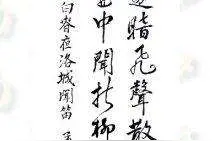 暗飛聲散
曲中聞折柳
白春夜洛城聞笛